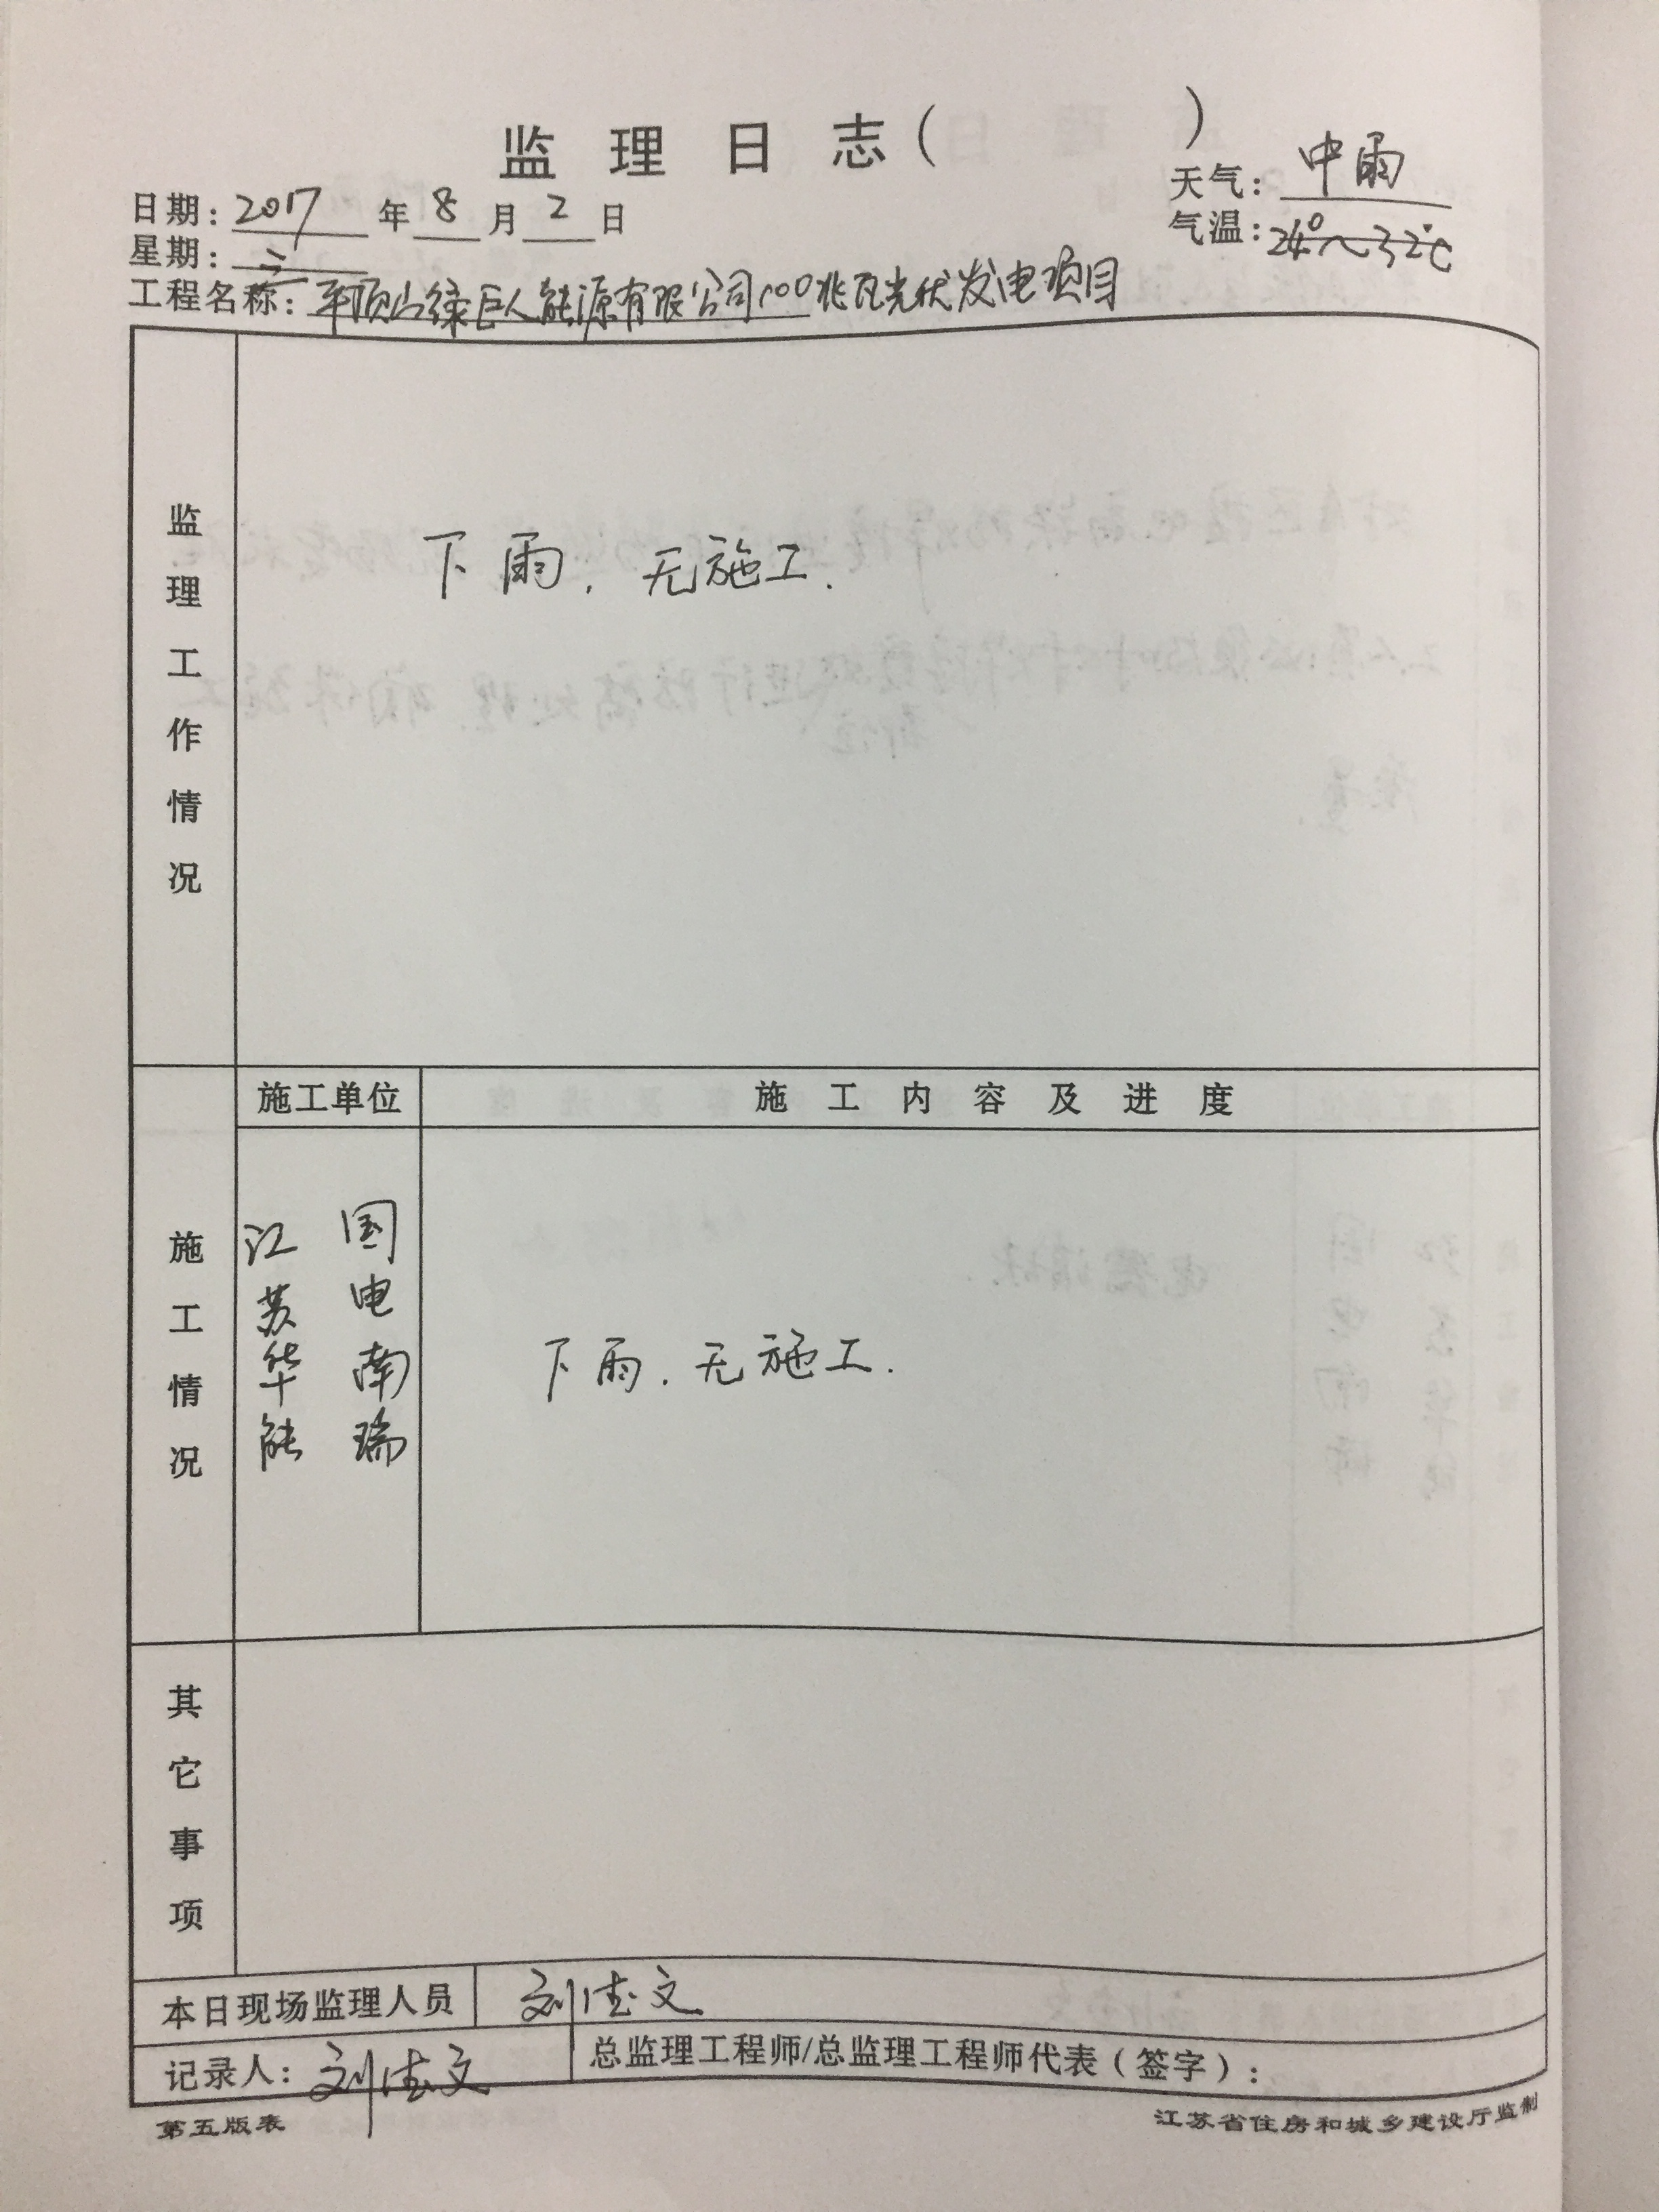 监理日志( )
天气: 中雨
日期: 2017 年 8 月 2 日
气温: 24°~32℃
星期: 三
工程名称: 平顶山绿巨人能源有限公司100兆瓦光伏发电项目
监理工作情况
下雨. 无施工.
施工单位
施工内容及进度
施工情况
江苏华能
国电南瑞
下雨. 无施工.
其它事项
本日现场监理人员 刘佳文
记录人: 刘佳文
总监理工程师/总监理工程师代表(签字):
第五版表
江苏省住房和城乡建设厅监制